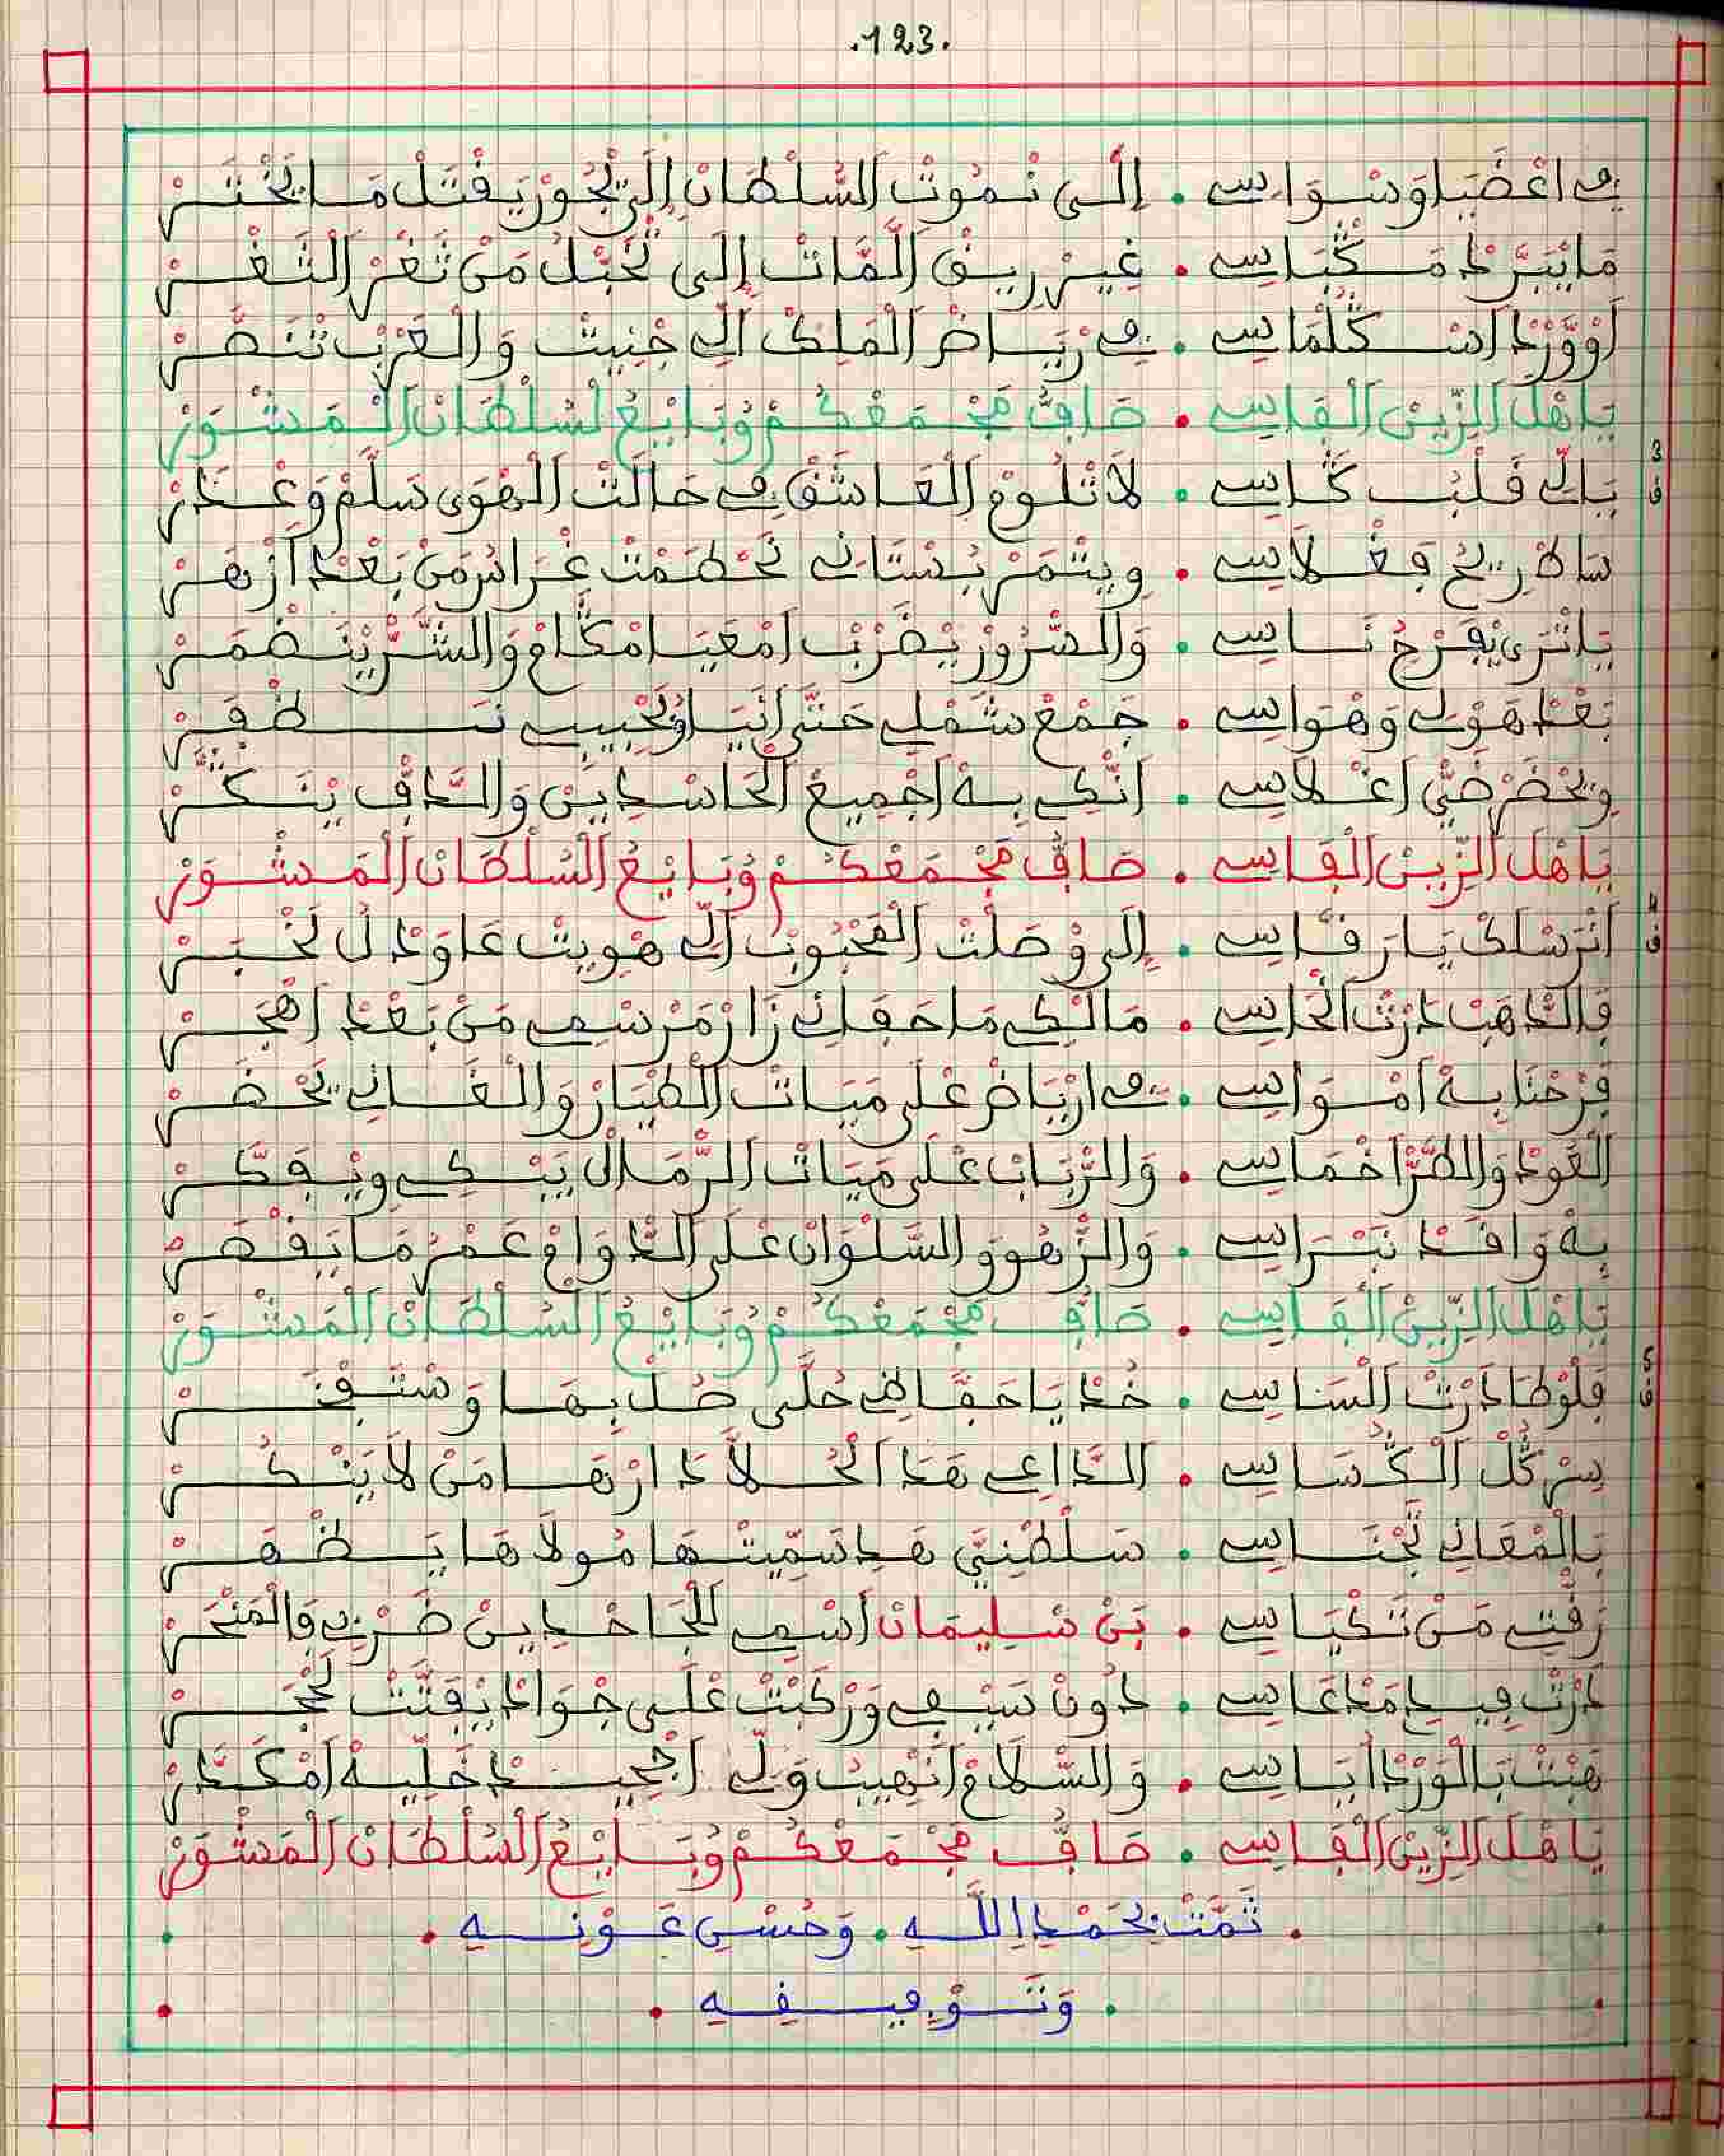 .123.
في اعْضَيَا وَسْوَاسِي . إِلَى نْمُوتْ السُّلْطَانْ إِلَى يْجُورْ يَقْتَلْ مَا يَخْتَرْ
مَا يْبَرَّدْ مَڭْبَاسِي . غِيرْ رِيقْ الْمَاتْ إِلَى نْحَبْلُ مَنْ ثَغْرْ الثَّغْرْ
أَوْ وَرْدْ اسْ ڭُلْمَاسِي . فِي رْيَاضْ الْمَلِكْ الِّي جْنِيتْ وَالْعَرْبْ تَنْصَرْ
يَاهْلَ الزِّينْ الْفَاسِي . صَافِي مَجْمَعْكُمْ وُبَايْعُ لسُّلْطَانْ الْمَشْوَرْ
3 ف
يَالِّي قَلْبُ ڭَاسِي . لَا تْلُومْ الْعَاشَقْ فِي حَالَتْ الْهْوَى سَلَّمْ وَعْدَرْ
سَاطْ رِيحْ فغْلَاسِي . وِيثْمَرْ بُسْتَانِي نَحْطَمْتْ غْرَايْرْ مَنْ بَعْدْ ازْهَرْ
يَا تْرَى يْفَرْجُ نَاسِي . وَالسُّرُورْ يْضَرْبْ امْعَيَا مْڭَامْ وَالشَّرّْ يَنْضْمَرْ
بَعْدْ هَوْلِي وَهْوَاسِي . جَمْعْ شَمْلِي حَتَّى أَنَيَا وُلَحْبِيبْ نَظْفَرْ
وِيحْضَرْ ضَيّْ اغْلَاسِي . انْكِي بِهْ اجْمِيعْ الْحَاسْدِينْ وَالدَّافِي يَنْكَرْ
يَاهْلَ الزِّينْ الْفَاسِي . صَافِي مَجْمَعْكُمْ وُبَايْعُ السُّلْطَانْ الْمَشْوَرْ
4 ف
انْرَسْلَكْ يَا رَقَّاسِي . إِلَى وْصَلْتْ الْمَحْبُوبْ الِّي هْوِيتْ عَاوَدْ لُ لَخْبَرْ
فَالدَّاهَبْ دَرْتْ الْحَاسِي . مَالْكِي مَا حَقَّانِي زَارْ مَرْسْمِي مَنْ بَعْدْ اهْجَرْ
فرْحْنَا بِهْ امْوَاسِي . فِي ارْيَاضْ عْلَى مَيَاتْ الطّْيَارْ وَالْغَانِي يَحْضَرْ
الْعَودْ وَالطَّرّْ اخْمَاسِي . وَالرّْبَابْ عْلَى مَيَاتْ الرّْمَالْ يَبْكِي وِيْفَكَّرْ
بِهْ وَافَدْ نَبْرَاسِي . وَالزّْهُو وَالسَّلْوَانْ عْلَى الدّْوَامْ عَمْرُ مَا يَقْصَرْ
يَاهْلَ الزِّينْ الْفَاسِي . صَافِي مَجْمَعْكُمْ وُبَايْعُ السُّلْطَانْ الْمَشْوَرْ
5 ف
فلُوطَا دَرْتْ السَّاسِي . خُدْ يَا حَفَّاظِي حُلَّى صُلْ بِهَا وَسْتَفْخَرْ
سِرْ ڭُلْ الْكُسَّاسِي . الدَّاعِي هَدَ الْحُلَّا دَارْهَا مَنْ لَا يَنْكُرْ
بَالْمْعَانِي تَجْنَاسِي . سَلْطْنِيَّ هَدِ سَمِّيتْهَا مُولَاهَا يَظْهَرْ
رَقْتِي مَنْ تَكْيَاسِي . بَنْ سْلِيمَانْ اسْمِي للْجَاحْدِينْ ضَرْبِي فَالْمَنْحَرْ
دَرْتْ فِيدِ مَدْعَاسِي . دُونْ سَيْفِي وَرْكَبْتْ عْلَى جْوَادْ يْفَتَّتْ لَحْجَرْ
هَبْتْ بَالْوَرْدْ ايَاسِي . وَالسّْلَامْ انْهِيبُ وَلِّي اجْحِيدْ خَلِّيهْ امْكَدَّرْ
يَاهْلَ الزِّينْ الْفَاسِي . صَافِي مَجْمَعْكُمْ وُبَايْعُ السُّلْطَانْ الْمَشْوَرْ
. تَمَّتْ بِحَمْدِ اللَّهِ . وَحُسْنِ عَوْنِهِ .
. وَتَوْفِيقِهِ .